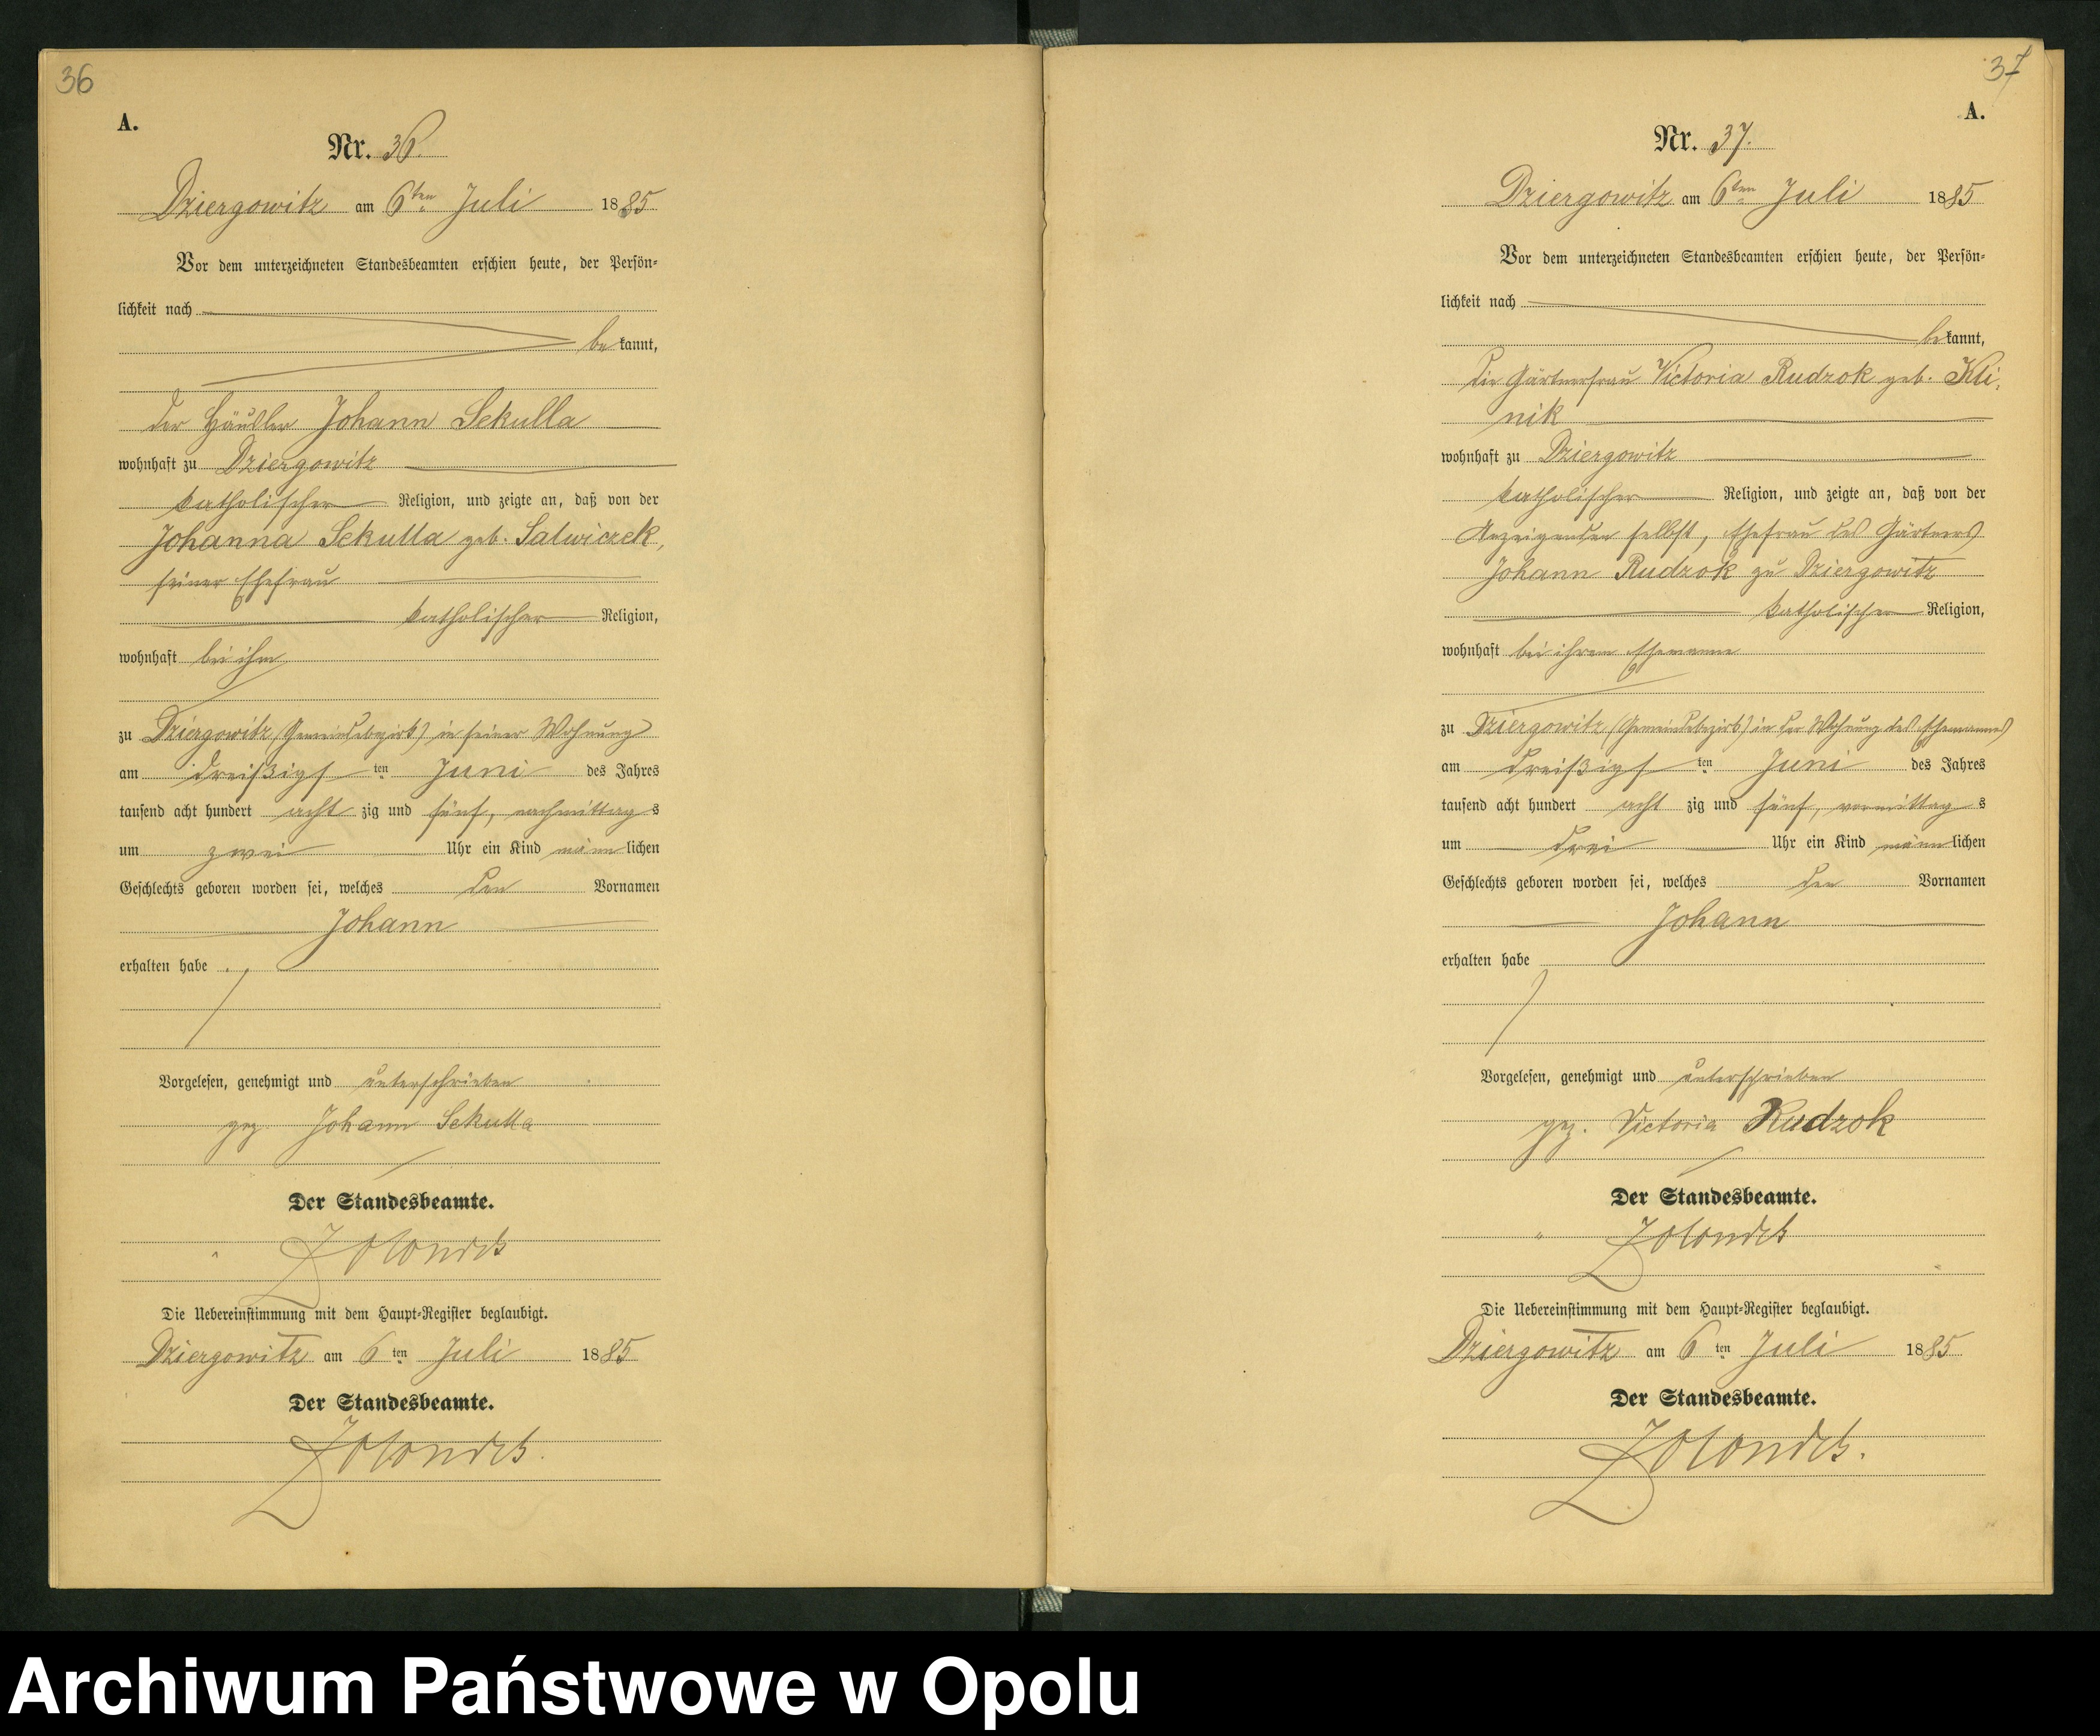 36
A.
Nr. 36.
Dziergowitz am 6ten Juli 1885
Vor dem unterzeichneten Standesbeamten erschien heute, der Persön-
lichkeit nach
bekannt,
der Häusler Johann Sekulla
wohnhaft zu Dziergowitz
katholischer Religion, und zeigte an, daß von der
Johanna Sekulla geb. Salwiczek,
seiner Ehefrau
katholischer Religion,
wohnhaft bei ihm
zu Dziergowitz (Gemeindebezirk) in seiner Wohnung
am dreißigsten Juni des Jahres
tausend acht hundert acht zig und fünf, nachmittags
um zwei Uhr ein Kind männlichen
Geschlechts geboren worden sei, welches den Vornamen
Johann
erhalten habe.
Vorgelesen, genehmigt und unterschrieben
gez. Johann Sekulla
Der Standesbeamte.
Zolondek
Die Uebereinstimmung mit dem Haupt-Register beglaubigt.
Dziergowitz am 6ten Juli 1885
Der Standesbeamte.
Zolondek.
37
A.
Nr. 37.
Dziergowitz am 6ten Juli 1885
Vor dem unterzeichneten Standesbeamten erschien heute, der Persön-
lichkeit nach
bekannt,
die Gärtnerfrau Victoria Rudzok geb. Kli-
nik
wohnhaft zu Dziergowitz
katholischer Religion, und zeigte an, daß von der
Anzeigenden selbst, Ehefrau des Gärtners
Johann Rudzok zu Dziergowitz
katholischer Religion,
wohnhaft bei ihrem Ehemanne
zu Dziergowitz (Gemeindebezirk) in der Wohnung des Ehemannes
am dreißigsten Juni des Jahres
tausend acht hundert acht zig und fünf, vormittags
um drei Uhr ein Kind männlichen
Geschlechts geboren worden sei, welches den Vornamen
Johann
erhalten habe
Vorgelesen, genehmigt und unterschrieben
gez. Victoria Rudzok
Der Standesbeamte.
Zolondek
Die Uebereinstimmung mit dem Haupt-Register beglaubigt.
Dziergowitz am 6ten Juli 1885
Der Standesbeamte.
Zolondek.
Archiwum Państwowe w Opolu